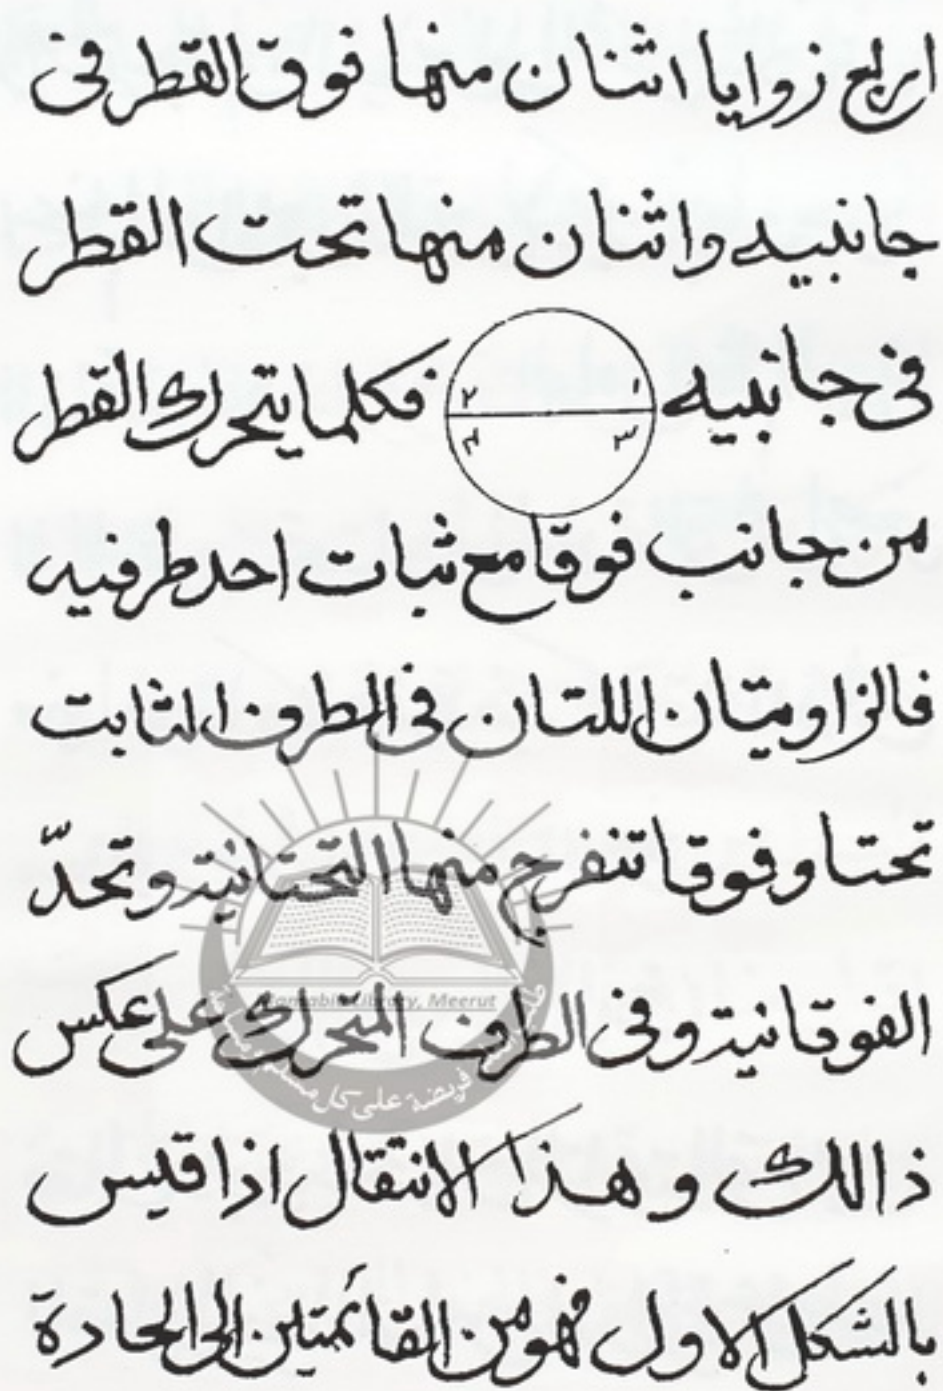 اربع زوايا اثنان منها فوق القطر فى
جانبيه واثنان منها تحت القطر
فى جانبيه ١ ٢ ٣ ٤ فكلما يتحرك القطر
من جانب فوقا مع ثبات احد طرفيه
فالزاويتان اللتان فى الطرف الثابت
تحتا وفوقا تنفرج منها التحتانية وتحدّ
الفوقانية وفى الطرف المتحرك على عكس
ذالك و هذا الانتقال اذا قيس
بالشكل الاول فهو من القائمتين الى الحادة
Library, Meerut
فريضة على كل مسلم